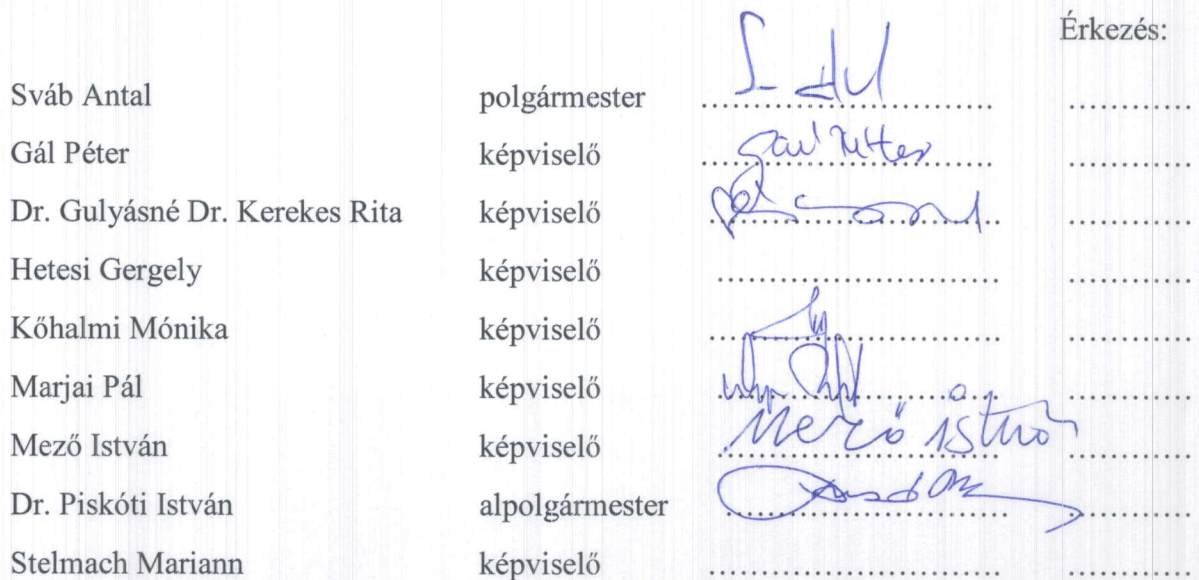 Érkezés:
Sváb Antal polgármester ........................................ ................
Gál Péter képviselő Gál Péter ................
Dr. Gulyásné Dr. Kerekes Rita képviselő ........................................ ................
Hetesi Gergely képviselő ........................................ ................
Kőhalmi Mónika képviselő ........................................ ................
Marjai Pál képviselő ........................................ ................
Mező István képviselő Mező István ................
Dr. Piskóti István alpolgármester ........................................ ................
Stelmach Mariann képviselő ........................................ ................